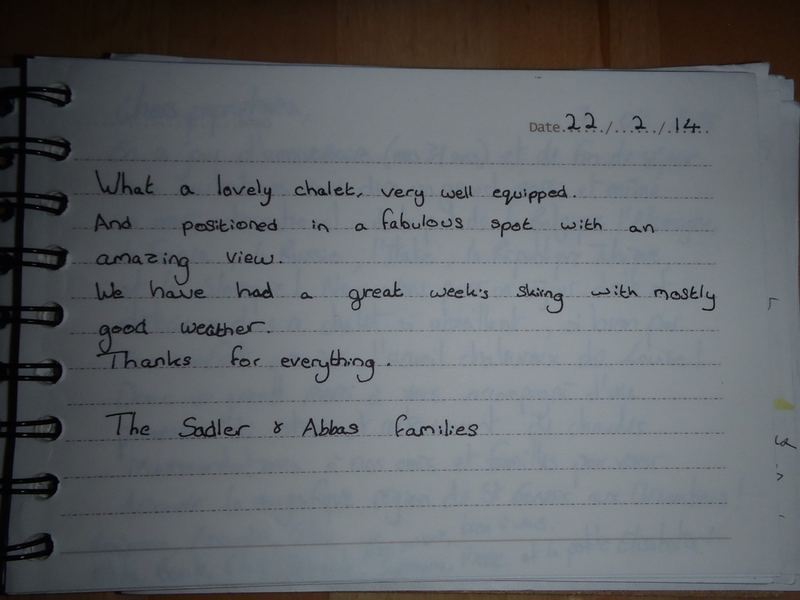 Date 22/2/14
What a lovely chalet, very well equipped.
And positioned in a fabulous spot with an
amazing view.
We have had a great week's skiing with mostly
good weather.
Thanks for everything.
The Sadler & Abbas families